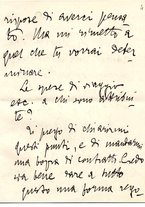 di averci pensa
to. Ma mi rimetto a
quel che tu vorrai deter
minare.
Le spese di viaggio
etc. a chi sono
te?
Ti prego di chiarirmi
questi punti, e di mandarmi
una bozza di contratto. Credo
sia bene dare a tutto
questo una forma rego